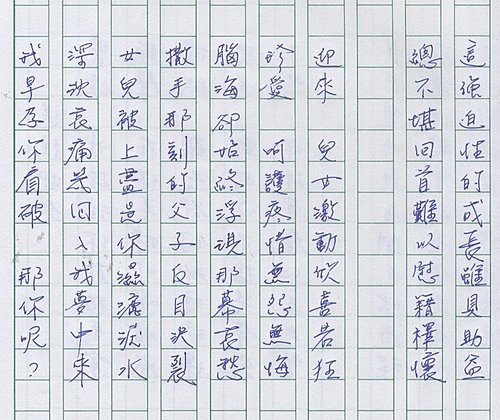 這強迫性的成長雖具助益
總不堪回首難以慰籍釋懷
迎來 兒女激動欣喜若狂
珍愛 呵護疼惜無怨無悔
腦海卻始終浮現那幕哀愁
撒手那刻的父子反目決裂
女兒被上盡是你濕漉淚水
深沈哀痛幾回入我夢中來
我早為你看破 那你呢?